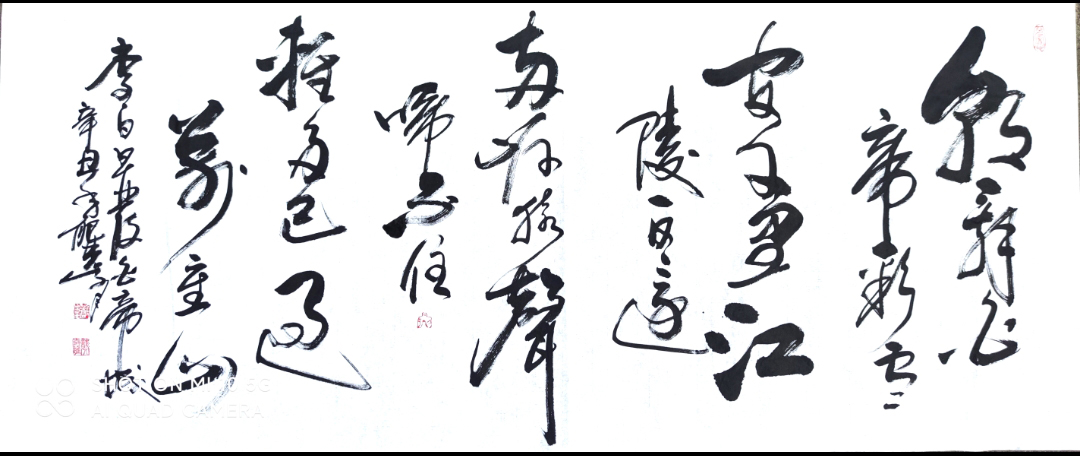 朝辞白
帝彩雲
間千里江
陵一日還
兩岸猿聲
啼不住
輕舟已過
萬重山
李白早發白帝城
辛丑
SHOT ON MI 5G
AI QUAD CAMERA